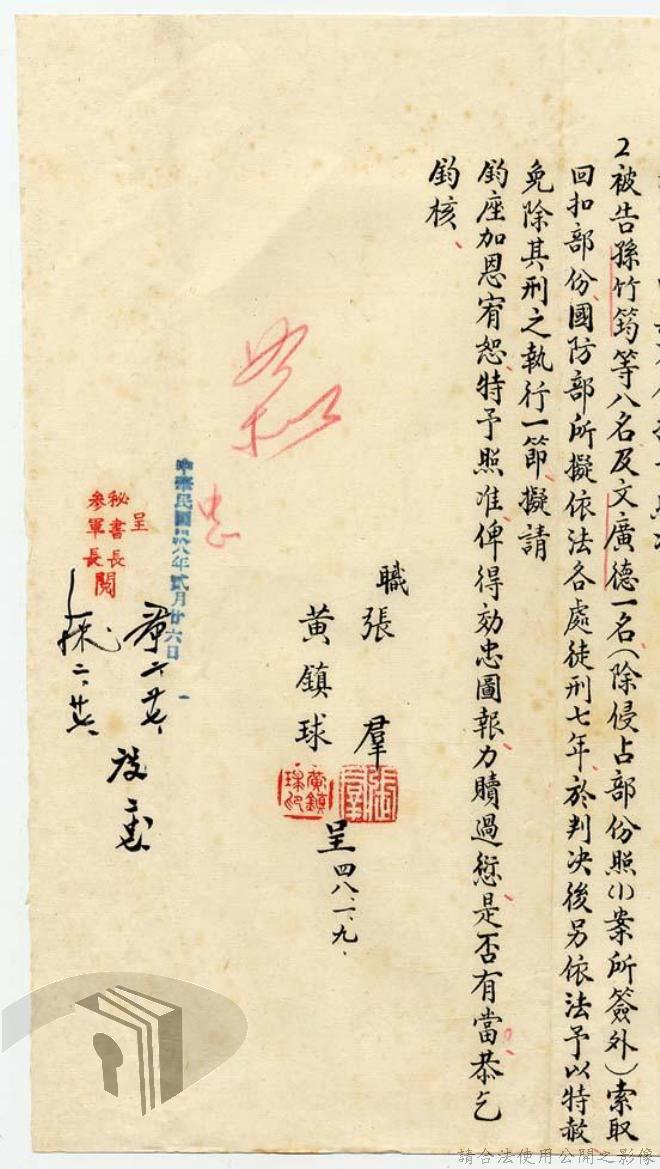 2被告孫竹筠等八名及文廣德一名(除侵占部份照(1)案所簽外)索取
回扣部份國防部所擬依法各處徒刑七年於判決後另依法予以特赦
免除其刑之執行一節擬請
鈞座加恩宥恕特予照准俾得効忠圖報力贖過愆是否有當恭乞
鈞核、
職張 羣
黃鎮球
呈四八、一、九、
張羣
黃鎮球印
如擬
中華民國四八年貳月廿六日
呈
秘書長
參軍長
閱
請合法使用公開之影像